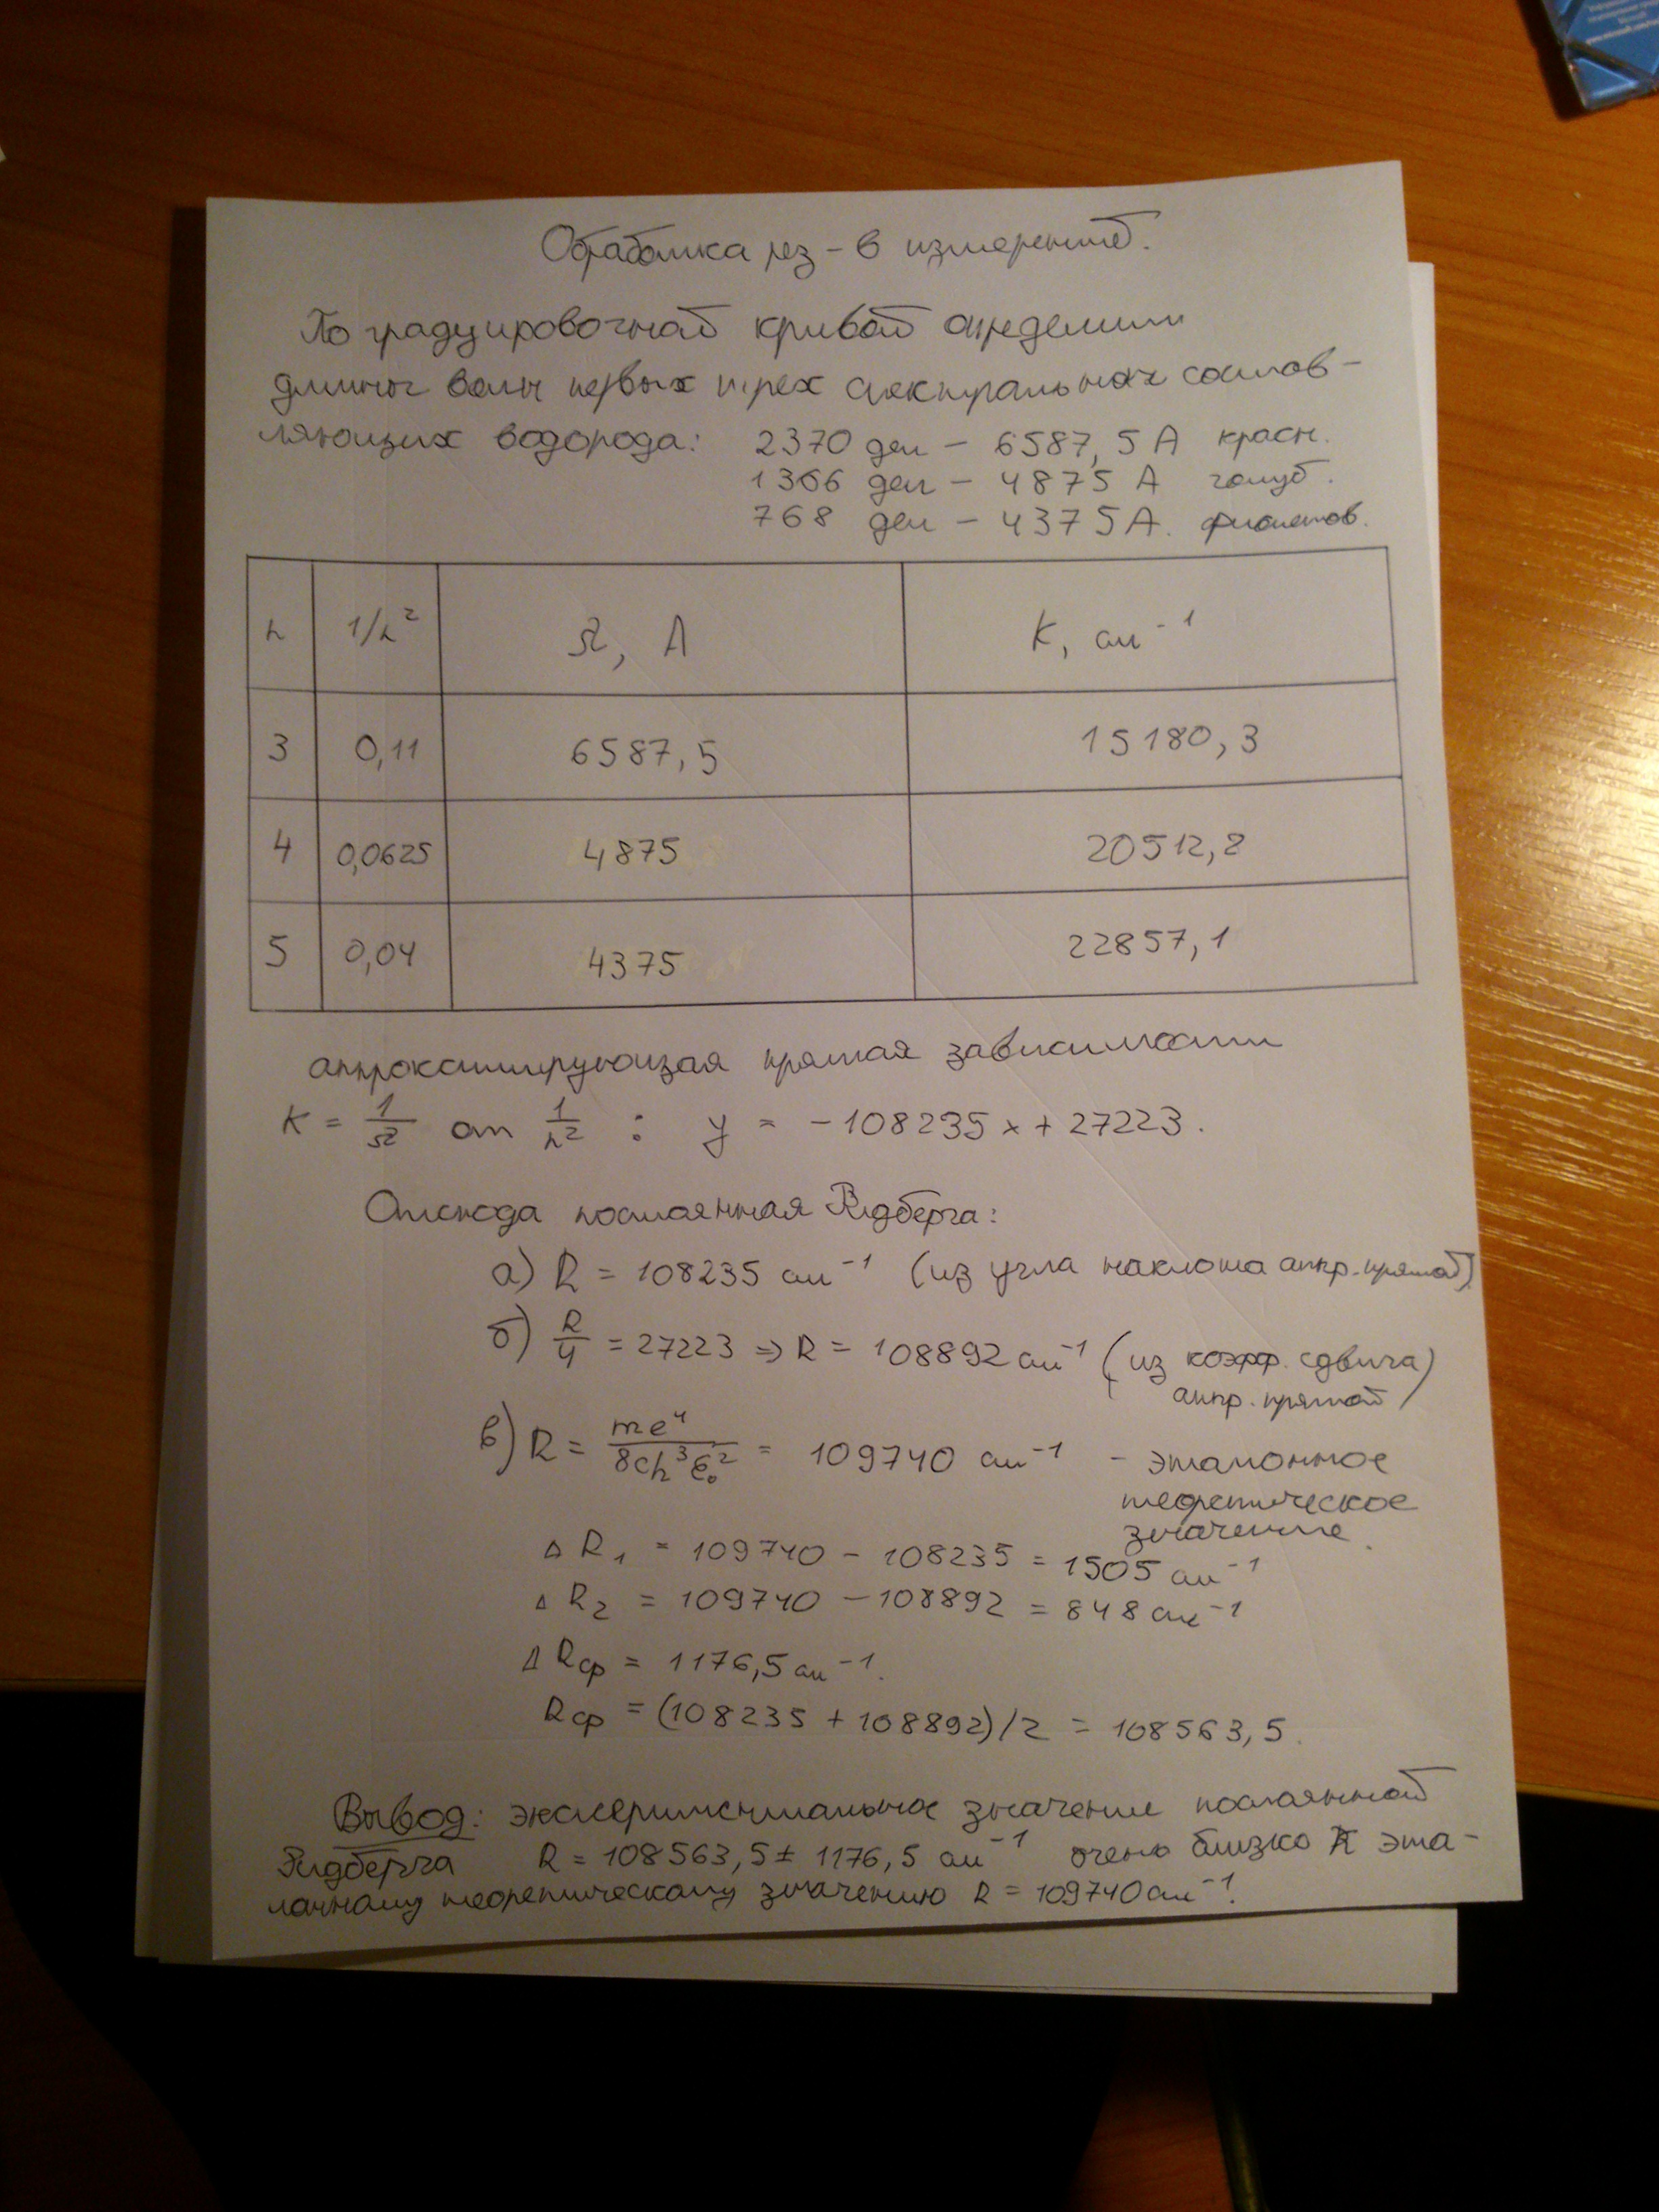 Обработка рез-в измерений.
По градуировочной кривой определим
длины волн первых трех спектральных состав-
ляющих водорода: 2370 дел – 6587,5 А красн.
1366 дел – 4875 А голуб.
768 дел – 4375 А. фиолетов.
n 1/n² λ, А K, см⁻¹
3 0,11 6587,5 15180,3
4 0,0625 4875 20512,8
5 0,04 4375 22857,1
аппроксимирующая прямая зависимости
K = 1/λ от 1/n² : y = -108235x + 27223.
Отсюда постоянная Ридберга:
а) R = 108235 см⁻¹ (из угла наклона аппр. прямой)
б) R/4 = 27223 => R = 108892 см⁻¹ (из коэфф. сдвига)
аппр. прямой
в) R = me⁴/8ch³ε₀² = 109740 см⁻¹ – эталонное
теоретическое
значение.
Δ R₁ = 109740 – 108235 = 1505 см⁻¹
Δ R₂ = 109740 – 108892 = 848 см⁻¹
Δ Rср = 1176,5 см⁻¹.
Rср = (108235 + 108892)/2 = 108563,5.
Вывод: экспериментальное значение постоянной
Ридберга R = 108563,5 ± 1176,5 см⁻¹ очень близко к эта-
лонному теоретическому значению R = 109740 см⁻¹.